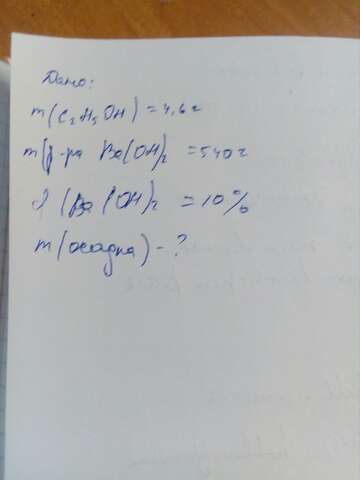 Дано:
m(C₂H₅OH) = 4,6 г
m(р-ра Ba(OH)₂ = 540 г
(Ba(OH)₂ = 10%
m(осадка) - ?